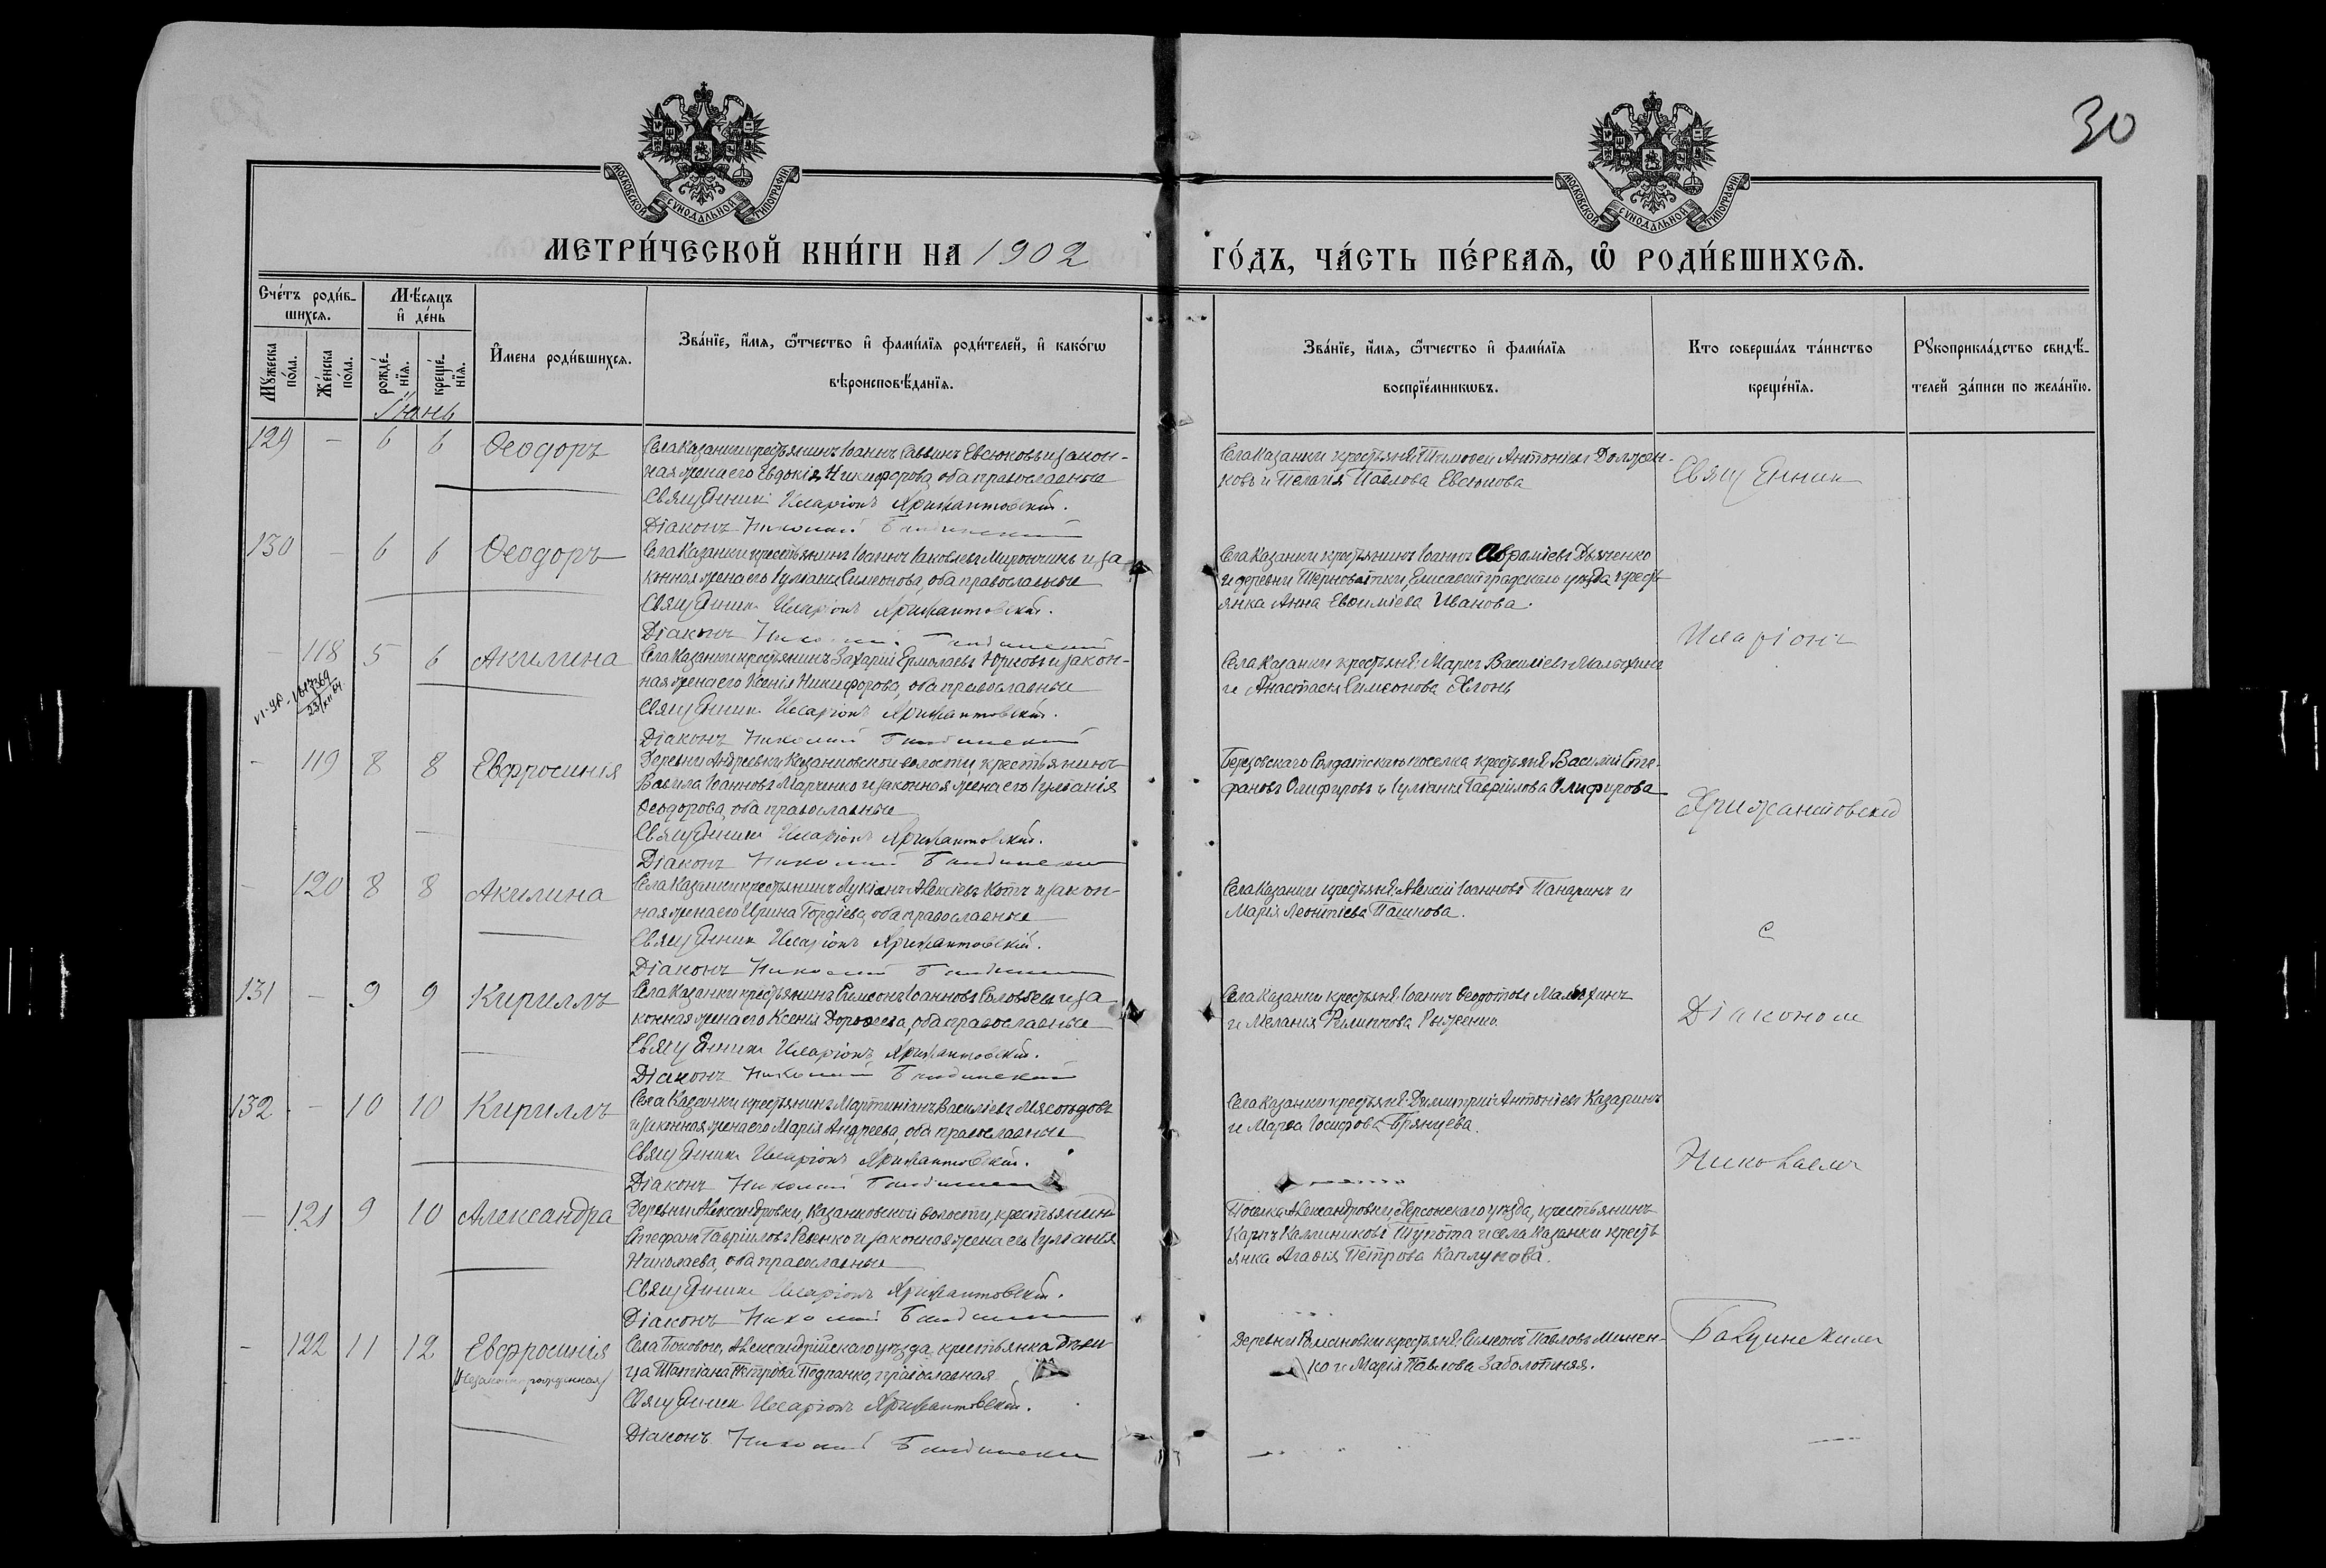 30
МОСКОВСКОЙ СУНОДАЛЬНОЙ ТИПОГРАФІИ
МОСКОВСКОЙ СУНОДАЛЬНОЙ ТИПОГРАФІИ
МЕТРИ́ЧЕСКОЙ КНИ́ГИ НА 1902 ГО́ДЪ, ЧА́СТЬ ПЕ́РВАѦ, Ѡ РОДИ́ВШИХСѦ.
Сче́тъ роди́в-
шихсѧ.
Мѣ́сѧцъ
и҆ де́нь
Мꙋ́жеска по́ла.
Же́нска по́ла.
рожде́-
нїѧ.
креще́-
нїѧ.
И҆мена роди́вшихсѧ.
Зва́нїе, и҆́мѧ, ѻ҆́тчество и҆ фами́лїѧ роди́телей, и҆ како́гѡ
вѣроисповѣ́данїѧ.
Зва́нїе, и҆́мѧ, ѻ҆́тчество и҆ фами́лїѧ
воспрїе́мникѡвъ.
Кто соверша́лъ та́инство
креще́нїѧ.
Рꙋкоприкла́дство свидѣ́-
телей за́писи по жела́нїю.
Іюнь
129 — 6 6 Ѳеодоръ
Села Казанки крестьянинъ Іоаннъ Саввинъ Евсюковъ и закон-
ная жена его Евдокія Никифорова, оба православные
Священникъ Иларіонъ Хрижантовскій.
Діаконъ Николай
Села Казанки крестьяне: Тимофей Антоніевъ Должен-
ковъ и Пелагія Павлова Евсюкова
Священник
130 — 6 6 Ѳеодоръ
Села Казанки крестьянинъ Іоаннъ Іаковлевъ Мирончикъ и за-
конная жена его Іуліанія Симеонова, оба православные
Священникъ Иларіонъ Хрижантовскій.
Діаконъ Николай
Села Казанки крестьянинъ Іоаннъ Авраміевъ Дьяченко
и деревни Терноватки, Елисаветградскаго уѣзда крестьянка
янка Анна Евѳиміева Иванова.
Иларіонъ
— 118 5 6 Акилина
Села Казанки крестьянинъ Захарій Ермолаевъ Юрковъ и закон-
ная жена его Ксенія Никифорова, оба православные
Священникъ Иларіонъ Хрижантовскій.
Діаконъ Николай
Села Казанки крестьяне: Маркъ Василіевъ Малыхинъ
и Анастасія Симеонова
— 119 8 8 Евфросинія
Деревни Андреевки, Казанковской волости, крестьянинъ
Вавила Іоанновъ Марченко и законная жена его Іуліанія
Ѳеодорова, оба православные
Священникъ Иларіонъ Хрижантовскій.
Діаконъ Николай
Березовскаго Солдатскаго поселка крестьяне: Василій Сте-
фановъ Олифировъ и Іуліанія Гавріилова Олифирова
Хрижантовскій
— 120 8 8 Акилина
Села Казанки крестьянинъ Лукіанъ Алексіевъ Котъ и закон-
ная жена его Ирина Гордіева, оба православные
Священникъ Иларіонъ Хрижантовскій.
Діаконъ Николай
Села Казанки крестьяне: Алексій Іоанновъ Панаринъ и
Марія Леонтіева Пашкова.
с
131 — 9 9 Кириллъ
Села Казанки крестьянинъ Симеонъ Іоанновъ Соловьевъ и за-
конная жена его Ксенія Дороѳеева, оба православные
Священникъ Иларіонъ Хрижантовскій.
Діаконъ Николай
Села Казанки крестьяне: Іоаннъ Ѳедотовъ Малыхинъ
и Меланія Филиппова Рыженко.
Діакономъ
132 — 10 10 Кириллъ
Села Казанки крестьянинъ Мартиніанъ Василіевъ Мясоѣдовъ
и законная жена его Марія Андреева, оба православные
Священникъ Иларіонъ Хрижантовскій.
Діаконъ Николай
Села Казанки крестьяне: Димитрій Антоніевъ Казаринъ
и Марѳа Іосифова Брянцева.
Николаемъ
— 121 9 10 Александра
Деревни Александровки, Казанковской волости, крестьянинъ
Стефанъ Гавріиловъ Ревенко и законная жена его Іуліанія
Николаева, оба православные
Священникъ Иларіонъ Хрижантовскій.
Діаконъ Николай
Поселка Александровки, Херсонскаго уѣзда, крестьянинъ
Карпъ Каллиниковъ Тупота и села Казанки кресть-
янка Агаѳія Петрова Каплунова.
— 122 11 12 Евфросинія
(Незаконнорожденная)
Села Бокового, Александрійскаго уѣзда, крестьянка дѣви-
ца Татіана Петрова Подпанко, православная
Священникъ Иларіонъ Хрижантовскій.
Діаконъ Николай
Деревни Романовки крестьяне: Симеонъ Павловъ Минен-
ко и Марія Павлова Заболотняя.